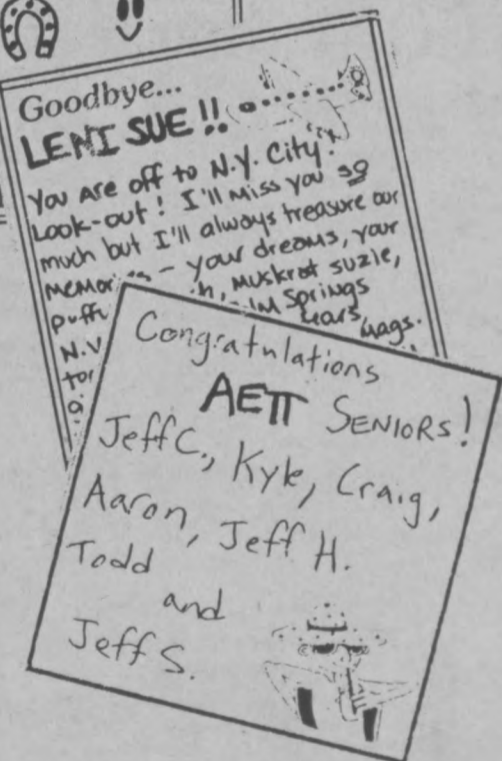 Goodbye...
LENI SUE!!
You are off to N.Y. City!
Look-out! I'll miss you so
much but I'll always treasure our
memories - your dreams, your
Muskrat Suzie,
Springs
Congratulations
AEΠ SENIORS!
Jeff C., Kyle, Craig,
Aaron, Jeff H.
Todd
and
Jeff S.